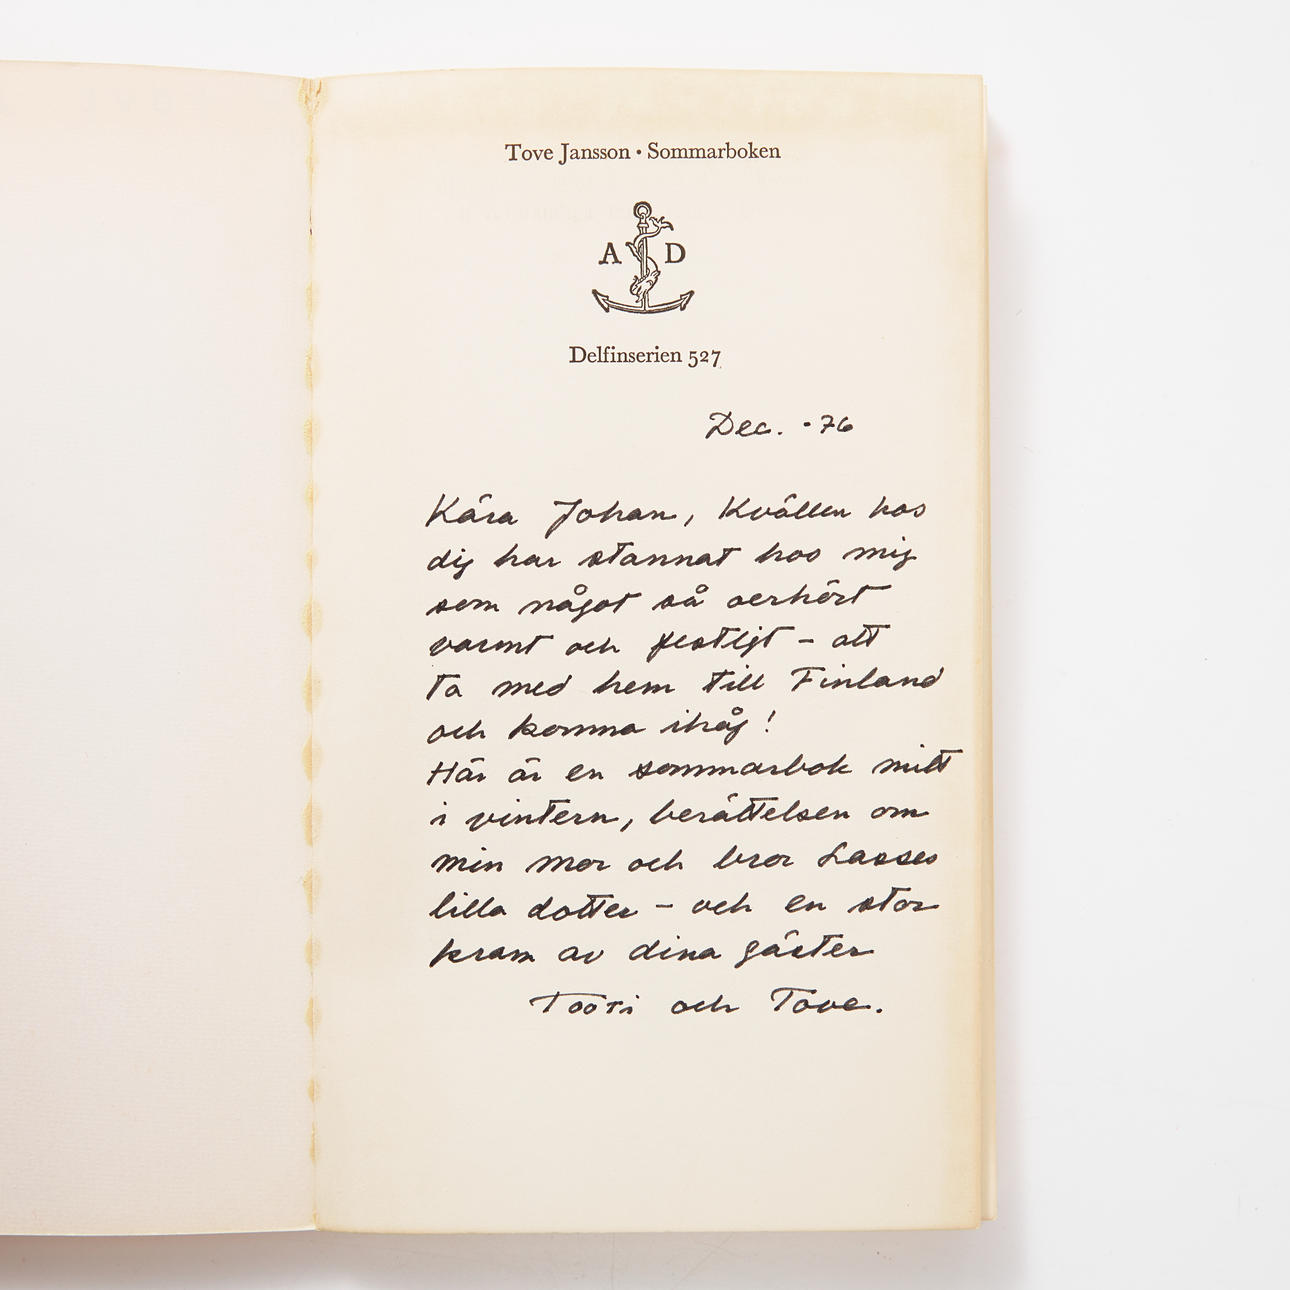 Tove Jansson • Sommarboken
A D
Delfinserien 527
Dec. -76
Kära Johan, Kvällen hos
dig har stannat hos mig
som något så oerhört
varmt och festligt – att
ta med hem till Finland
och komma ihåg!
Här är en sommarbok mitt
i vintern, berättelsen om
min mor och bror Lasses
lilla dotter – och en stor
kram av dina gäster
Tooti och Tove.